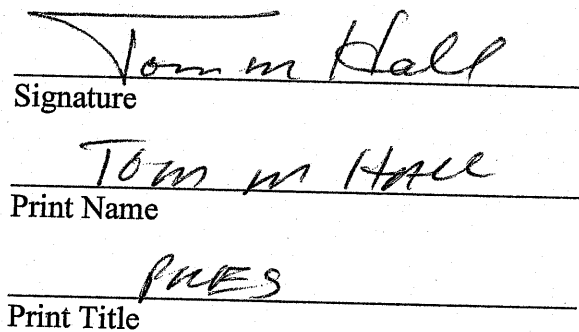 Tom m Hall
Signature
Tom m HALL
Print Name
PRES
Print Title